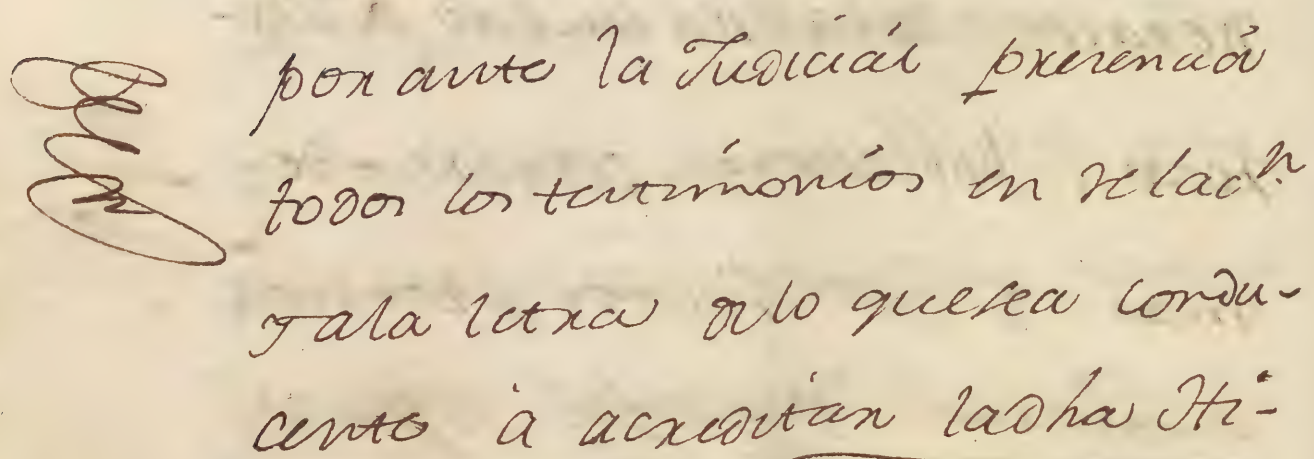 por ante la Judicial presencia
todos los testimonios en relac.n
y ala letra de lo que sea condu-
cente à acreditar la dha Hi-